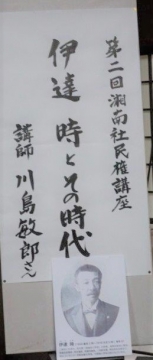 第二回湘南社民権講座
伊達 時とその時代
講師 川島敏郎さん
伊達 時